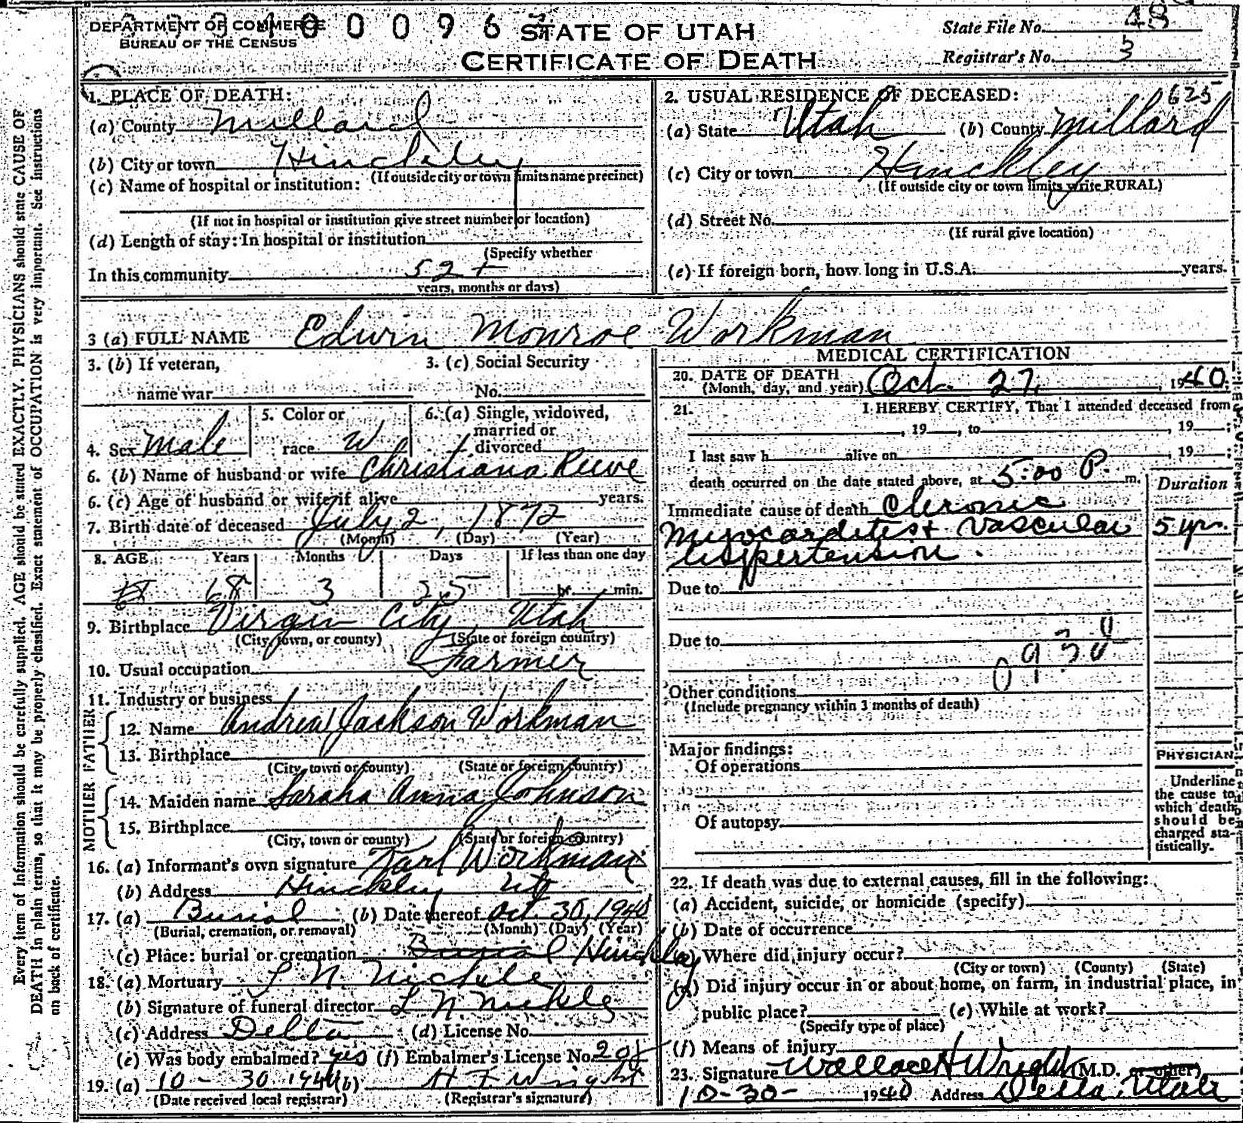 DEPARTMENT OF COMMERCE
BUREAU OF THE CENSUS
0 0 0 9 6
STATE OF UTAH
CERTIFICATE OF DEATH
State File No. 48
Registrar's No. 3
1. PLACE OF DEATH:
(a) County Millard
(b) City or town Hinckley
(If outside city or town limits name precinct)
(c) Name of hospital or institution:
(If not in hospital or institution give street number or location)
(d) Length of stay: In hospital or institution
(Specify whether
In this community 52+
years, months or days)
2. USUAL RESIDENCE OF DECEASED: 625
(a) State Utah (b) County Millard
(c) City or town Hinckley
(If outside city or town limits write RURAL)
(d) Street No.
(If rural give location)
(e) If foreign born, how long in U.S.A. years.
3 (a) FULL NAME Edwin Monroe Workman
3. (b) If veteran,
name war
3. (c) Social Security
No.
4. Sex Male
5. Color or
race W
6. (a) Single, widowed,
married or
divorced
6. (b) Name of husband or wife Christiana Reeve
6. (c) Age of husband or wife if alive years.
7. Birth date of deceased July 2, 1872
(Month) (Day) (Year)
8. AGE Years Months Days If less than one day
68 3 25 hr. min.
9. Birthplace Virgin City, Utah
(City, town, or county) (State or foreign country)
10. Usual occupation Farmer
11. Industry or business
FATHER
12. Name Andrew Jackson Workman
13. Birthplace
(City, town or county) (State or foreign country)
MOTHER
14. Maiden name Saraha Anna Johnson
15. Birthplace
(City, town or county) (State or foreign country)
16. (a) Informant's own signature Karl Workman
(b) Address Hinckley Ut
17. (a) Burial (b) Date thereof Oct. 30, 1940
(Burial, cremation, or removal) (Month) (Day) (Year)
(c) Place: burial or cremation Burial Hinckley
18. (a) Mortuary L N Nickle
(b) Signature of funeral director L N Nickle
(c) Address Delta (d) License No.
(e) Was body embalmed? yes (f) Embalmer's License No.
19. (a) 10-30 1940 (b) H F Wright
(Date received local registrar) (Registrar's signature)
MEDICAL CERTIFICATION
20. DATE OF DEATH
(Month, day, and year) Oct. 27, 1940.
21. I HEREBY CERTIFY, That I attended deceased from
, 19 , to , 19 ;
I last saw h alive on , 19 ;
death occurred on the date stated above, at 5:00 P. m.
Duration
Immediate cause of death Chronic
Myocarditis + Vascular 5 yrs.
Hypertension.
Due to
Due to
093d
Other conditions
(Include pregnancy within 3 months of death)
Major findings:
Of operations
Of autopsy
PHYSICIAN
Underline
the cause to
which death
should be
charged sta-
tistically.
22. If death was due to external causes, fill in the following:
(a) Accident, suicide, or homicide (specify)
(b) Date of occurrence
(c) Where did injury occur?
(City or town) (County) (State)
(d) Did injury occur in or about home, on farm, in industrial place, in
public place? (e) While at work?
(Specify type of place)
(f) Means of injury
23. Signature Wallace H Wright (M.D. or other)
10-30- 1940 Address Delta, Utah
Every item of information should be carefully supplied. AGE should be stated EXACTLY. PHYSICIANS should state CAUSE OF
DEATH in plain terms, so that it may be properly classified. Exact statement of OCCUPATION is very important. See instructions
on back of certificate.